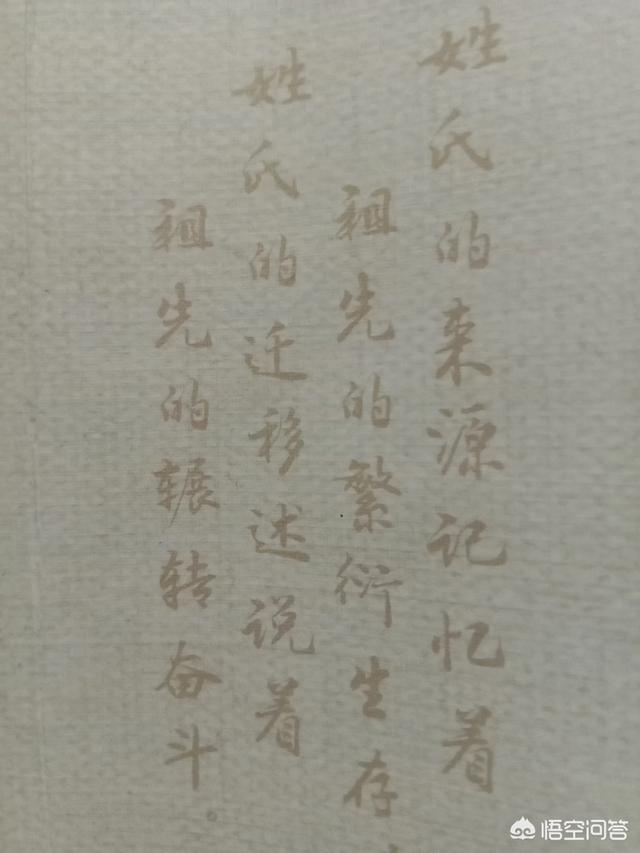 姓氏的来源记忆着
祖先的繁衍生存
姓氏的迁移述说着
祖先的辗转奋斗。
悟空问答